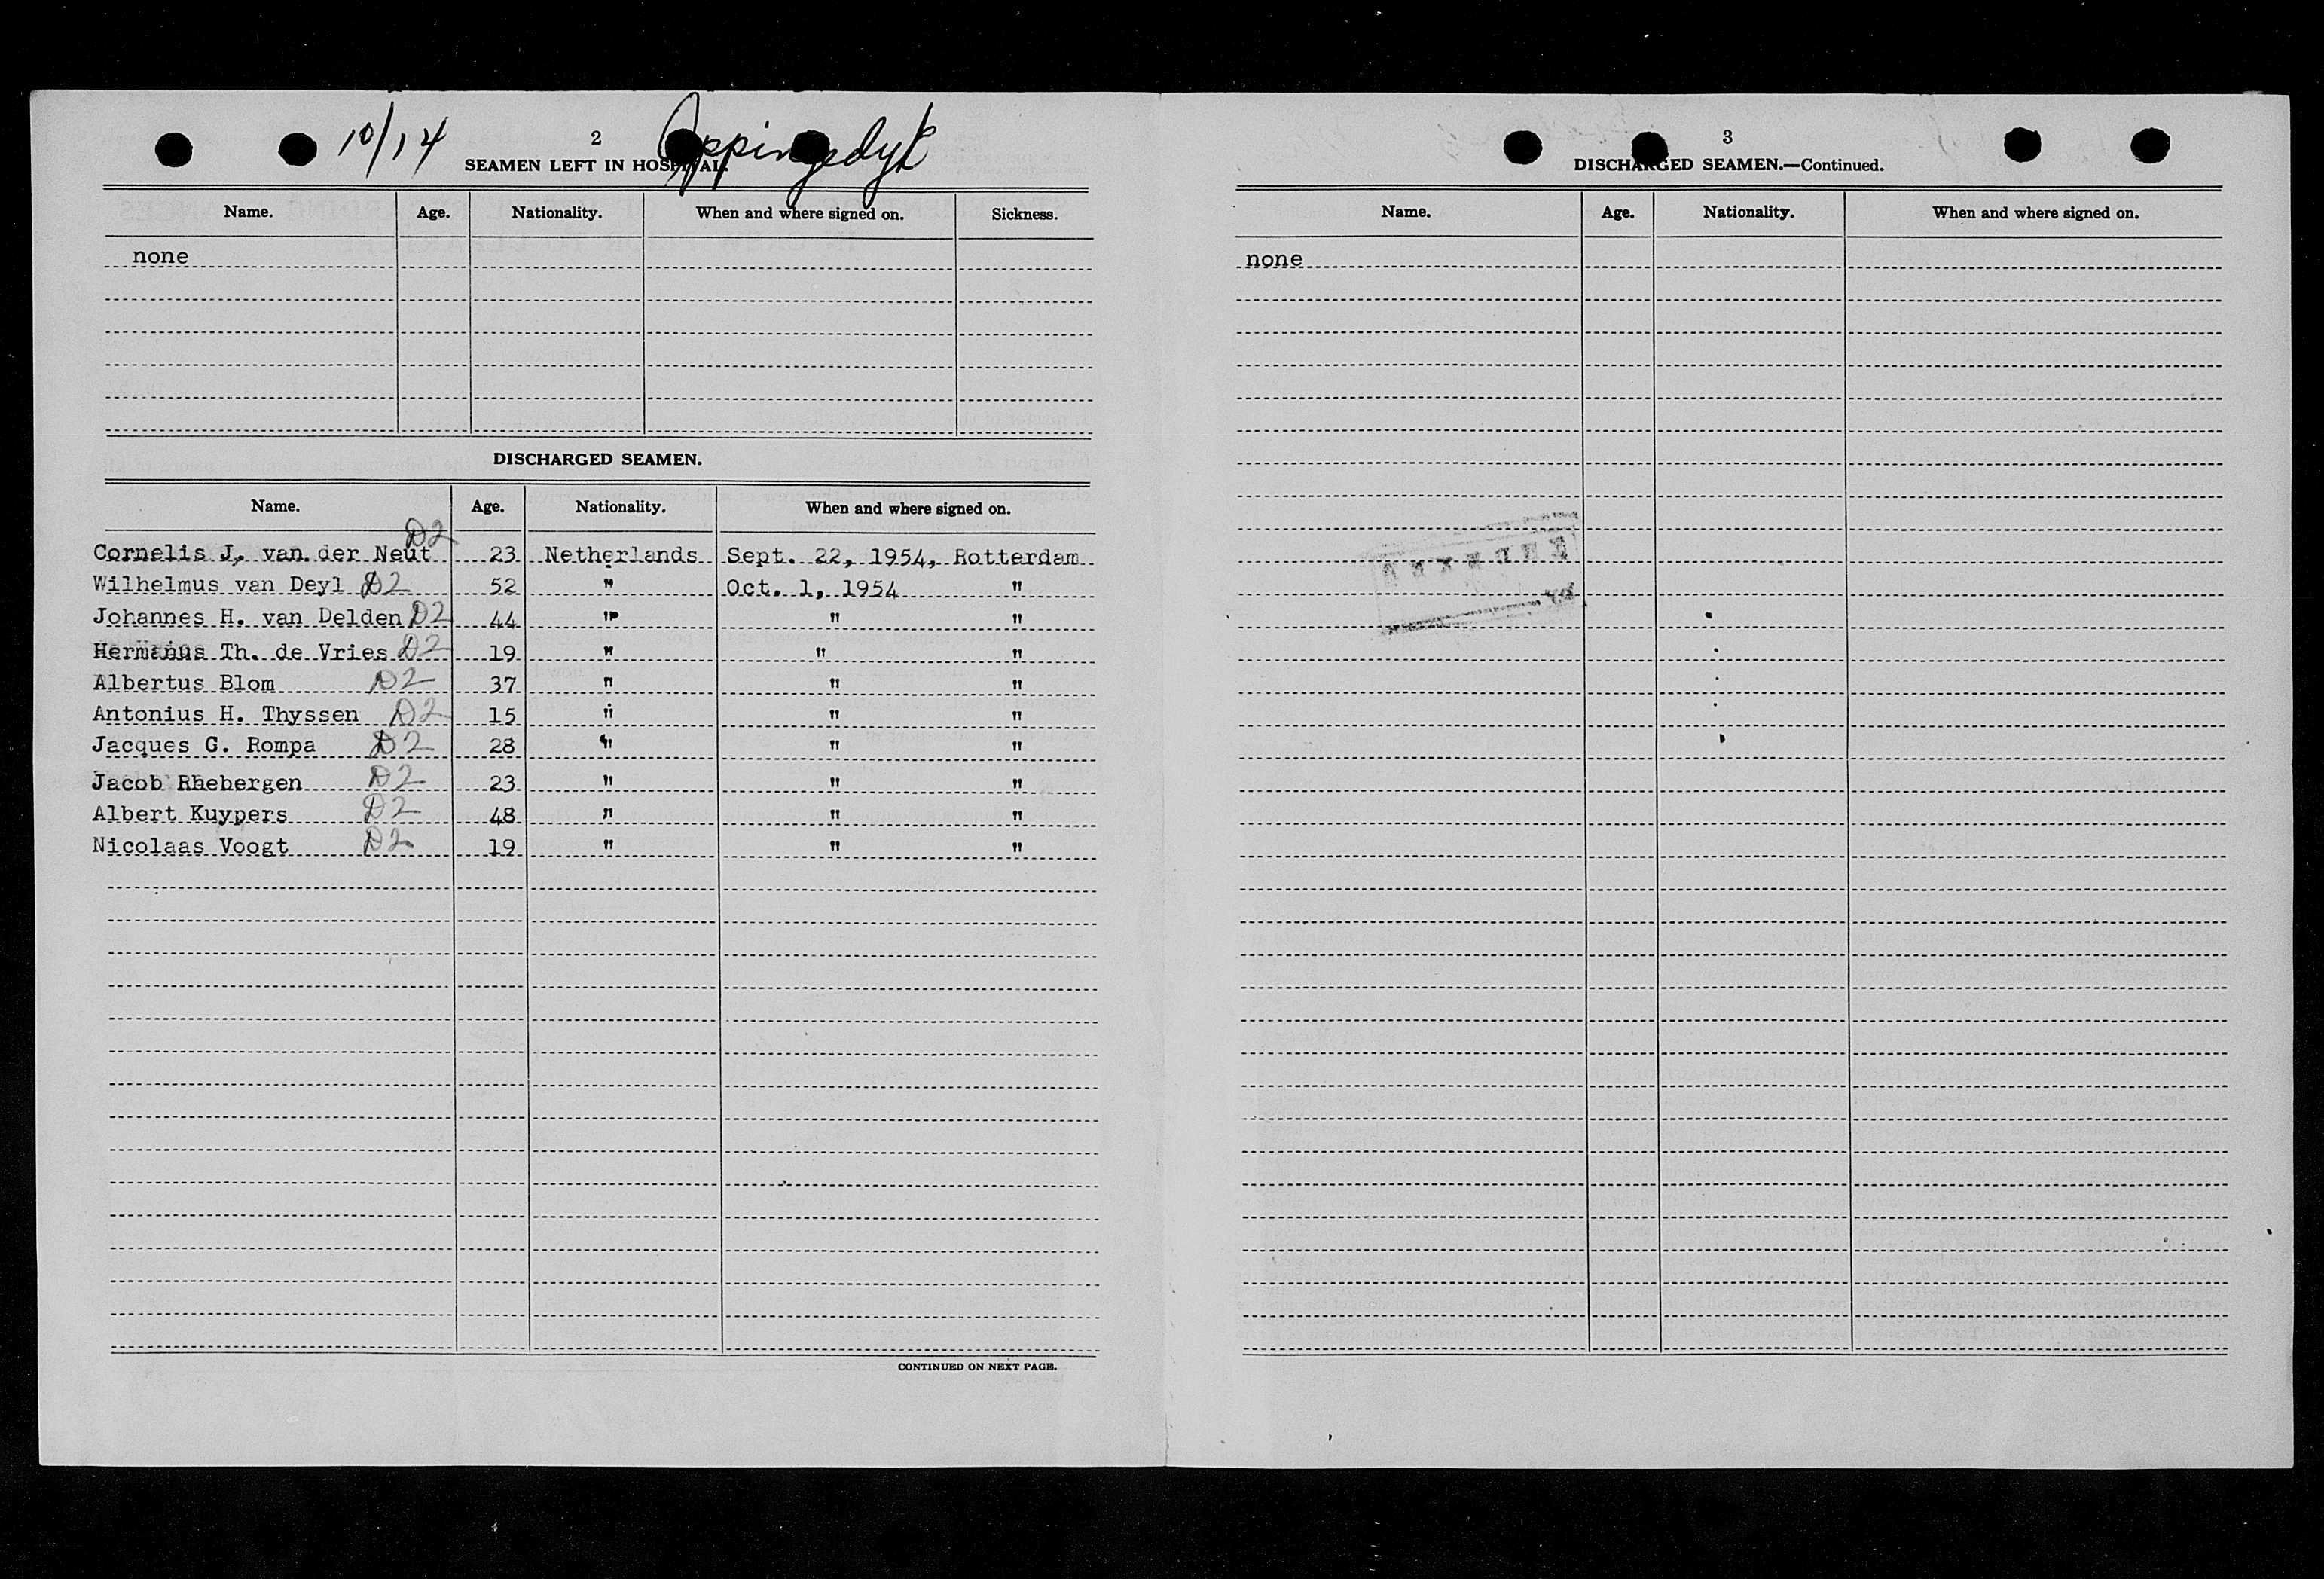 10/14 2 Oppingedyk
SEAMEN LEFT IN HOSPITAL.
Name. Age. Nationality. When and where signed on. Sickness.
none
DISCHARGED SEAMEN.
Name. Age. Nationality. When and where signed on.
D2
Cornelis J. van der Neut 23 Netherlands Sept. 22, 1954, Rotterdam
Wilhelmus van Deyl D2 52 " Oct. 1, 1954 "
Johannes H. van Delden D2 44 " " "
Hermanus Th. de Vries D2 19 " " "
Albertus Blom D2 37 " " "
Antonius H. Thyssen D2 15 " " "
Jacques G. Rompa D2 28 " " "
Jacob Rhebergen D2 23 " " "
Albert Kuypers D2 48 " " "
Nicolaas Voogt D2 19 " " "
CONTINUED ON NEXT PAGE.
3
DISCHARGED SEAMEN.—Continued.
Name. Age. Nationality. When and where signed on.
none